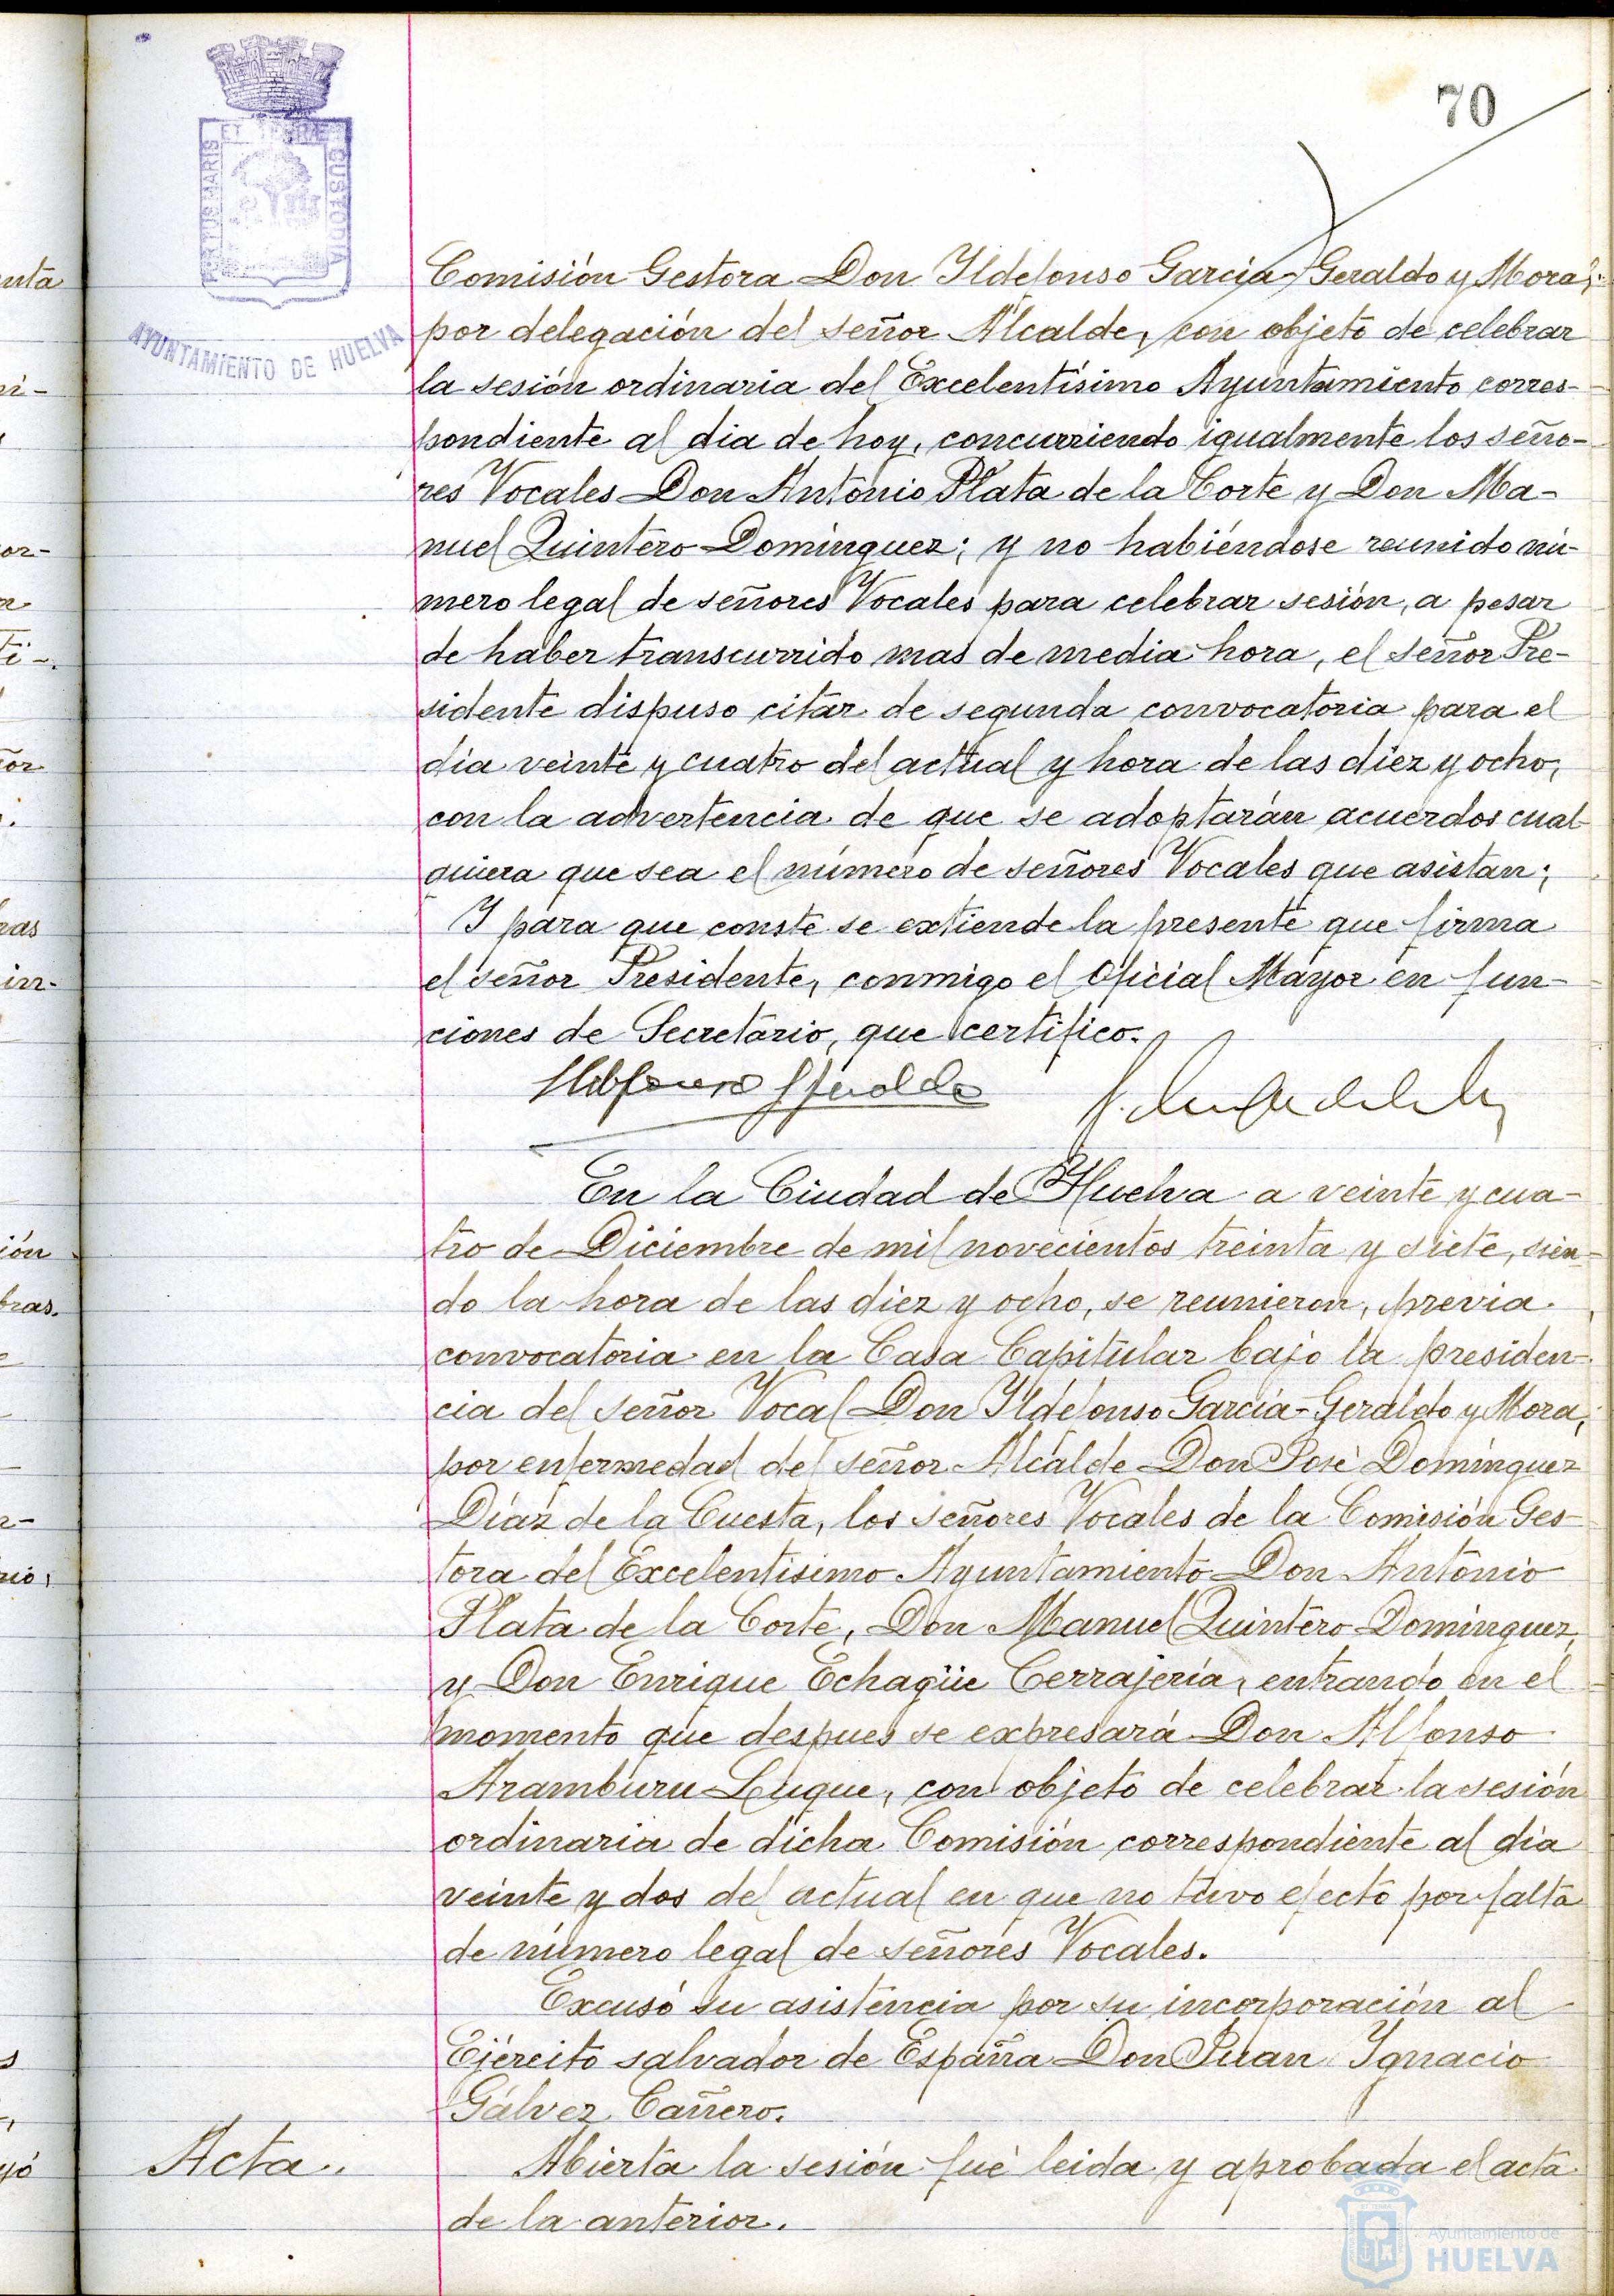 70
PORTUS MARIS ET TERRAE CUSTODIA
AYUNTAMIENTO DE HUELVA
Comisión Gestora Don Ildefonso García-Geraldo y Mora,
por delegación del señor Alcalde, con objeto de celebrar
la sesión ordinaria del Excelentísimo Ayuntamiento corres-
pondiente al dia de hoy, concurriendo igualmente los seño-
res Vocales Don Antonio Plata de la Corte y Don Ma-
nuel Quintero Domínguez; y no habiéndose reunido nú-
mero legal de señores Vocales para celebrar sesión, a pesar
de haber transcurrido mas de media hora, el señor Pre-
sidente dispuso citar de segunda convocatoria para el
día veinte y cuatro del actual y hora de las diez y ocho,
con la advertencia de que se adoptarán acuerdos cual-
quiera que sea el número de señores Vocales que asistan;
Y para que conste se extiende la presente que firma
el señor Presidente, conmigo el Oficial Mayor en fun-
ciones de Secretario, que certifico.
En la Ciudad de Huelva a veinte y cua-
tro de Diciembre de mil novecientos treinta y siete, sien-
do la hora de las diez y ocho, se reunieron, previa
convocatoria en la Casa Capitular bajo la presiden-
cia del señor Vocal Don Ildefonso García-Geraldo y Mora,
por enfermedad del señor Alcalde Don José Domínguez
Díaz de la Cuesta, los señores Vocales de la Comisión Ges-
tora del Excelentísimo Ayuntamiento Don Antonio
Plata de la Corte, Don Manuel Quintero Domínguez,
y Don Enrique Echagüe Cerrajería, entrando en el
momento que despues se expresará Don Alfonso
Aramburu Luque, con objeto de celebrar la sesión
ordinaria de dicha Comisión correspondiente al día
veinte y dos del actual en que no tuvo efecto por falta
de número legal de señores Vocales.
Excusó su asistencia por su incorporación al
Ejército salvador de España Don Juan Ignacio
Gálvez Cañero.
Acta.
Abierta la sesión fué leida y aprobada el acta
de la anterior.
Ayuntamiento de
HUELVA